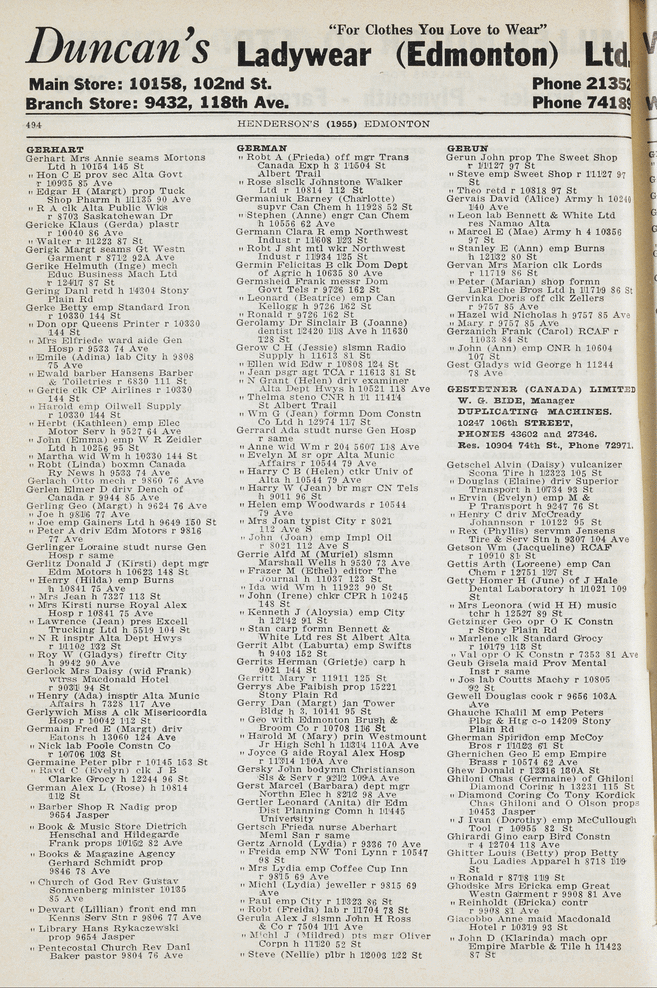 "For Clothes You Love to Wear"
Duncan's Ladywear (Edmonton) Ltd.
Main Store: 10158, 102nd St. Phone 21352
Branch Store: 9432, 118th Ave. Phone 74189
494 HENDERSON'S (1955) EDMONTON
GERHART
Gerhart Mrs Annie seams Mortons
Ltd h 10154 145 St
" Hon C E prov sec Alta Govt
r 10935 85 Ave
" Edgar H (Margt) prop Tuck
Shop Pharm h 11135 90 Ave
" R A clk Alta Public Wks
r 8703 Saskatchewan Dr
Gericke Klaus (Gerda) plastr
r 10040 86 Ave
" Walter r 11223 87 St
Gerigk Margt seams Gt Westn
Garment r 8712 92A Ave
Gerike Helmuth (Inge) mech
Educ Business Mach Ltd
r 12417 87 St
Gering Danl retd h 14304 Stony
Plain Rd
Gerke Betty emp Standard Iron
r 10330 144 St
" Don opr Queens Printer r 10330
144 St
" Mrs Elfriede ward aide Gen
Hosp r 9533 74 Ave
" Emile (Adina) lab City h 9808
75 Ave
" Ewald barber Hansens Barber
& Toiletries r 6830 111 St
" Gertie clk CP Airlines r 10330
144 St
" Harold emp Oilwell Supply
r 10330 144 St
" Herbt (Kathleen) emp Elec
Motor Serv h 9527 64 Ave
" John (Emma) emp W R Zeidler
Ltd h 10256 95 St
" Martha wid Wm h 10330 144 St
" Robt (Linda) boxmn Canada
Ry News h 9533 74 Ave
Gerlach Otto mech r 9860 76 Ave
Gerlei Elmer D driv Dench of
Canada r 9944 85 Ave
Gerling Geo (Margt) h 9624 76 Ave
" Joe h 9816 77 Ave
" Joe emp Gainers Ltd h 9649 150 St
" Peter A driv Edm Motors r 9816
77 Ave
Gerlinger Loraine studt nurse Gen
Hosp r same
Gerlitz Donald J (Kirsti) dept mgr
Edm Motors h 10623 148 St
" Henry (Hilda) emp Burns
h 10841 75 Ave
" Mrs Jean h 7327 113 St
" Mrs Kirsti nurse Royal Alex
Hosp r 10841 75 Ave
" Lawrence (Jean) pres Excell
Trucking Ltd h 5519 104 St
" N R insptr Alta Dept Hwys
r 11102 132 St
" Roy W (Gladys) fireftr City
h 9942 90 Ave
Gerlock Mrs Daisy (wid Frank)
wtrss Macdonald Hotel
r 9031 94 St
" Henry (Ada) insptr Alta Munic
Affairs h 7328 117 Ave
Gerlywich Miss A clk Misericordia
Hosp r 10042 112 St
Germain Fred E (Margt) driv
Eatons h 13060 124 Ave
" Nick lab Poole Constn Co
r 10706 103 St
Germaine Peter plbr r 10145 153 St
" Ravd C (Evelyn) clk J B
Clarke Grocy h 12244 96 St
German Alex L (Rose) h 10814
112 St
" Barber Shop R Nadig prop
9654 Jasper
" Book & Music Store Dietrich
Henschal and Hildegarde
Frank props 10162 82 Ave
" Books & Magazine Agency
Gerhard Schmidt prop
9846 78 Ave
" Church of God Rev Gustav
Sonnenberg minister 10135
85 Ave
" Dewart (Lillian) front end mn
Kenns Serv Stn r 9806 77 Ave
" Library Hans Rykaczewski
prop 9654 Jasper
" Pentecostal Church Rev Danl
Baker pastor 9804 76 Ave
GERMAN
" Robt A (Frieda) off mgr Trans
Canada Exp h 3 11504 St
Albert Trail
" Rose slsclk Johnstone Walker
Ltd r 10814 112 St
Germaniuk Barney (Charlotte)
supvr Can Chem h 11928 52 St
" Stephen (Anne) engr Can Chem
h 10556 62 Ave
Germann Clara R emp Northwest
Indust r 11608 123 St
" Robt J sht mtl wkr Northwest
Indust r 11934 125 St
Germin Felicitas B clk Dom Dept
of Agric h 10635 80 Ave
Germsheid Frank messr Dom
Govt Tels r 9726 162 St
" Leonard (Beatrice) emp Can
Kellogg h 9726 162 St
" Ronald r 9726 162 St
Gerolamy Dr Sinclair B (Joanne)
dentist 12420 118 Ave h 11630
128 St
Gerow C H (Jessie) slsmn Radio
Supply h 11613 81 St
" Ellen wid Edw r 10808 124 St
" Jean psgr agt TCA r 11613 81 St
" N Grant (Helen) driv examiner
Alta Dept Hwys h 10521 118 Ave
" Thelma steno CNR h 11 11414
St Albert Trail
" Wm G (Jean) formn Dom Constn
Co Ltd h 12974 117 St
Gerrard Ada studt nurse Gen Hosp
r same
" Anne wid Wm r 204 5607 118 Ave
" Evelyn M sr opr Alta Munic
Affairs r 10544 79 Ave
" Harry C B (Helen) ctkr Univ of
Alta h 10544 79 Ave
" Harry W (Jean) br mgr CN Tels
h 9011 96 St
" Helen emp Woodwards r 10544
79 Ave
" Mrs Joan typist City r 8021
112 Ave S
" John (Joan) emp Impl Oil
r 8021 112 Ave S
Gerrie Alfd M (Muriel) slsmn
Marshall Wells h 9530 73 Ave
" Frazer M (Ethel) editor The
Journal h 11037 123 St
" Ida wid Wm h 11923 90 St
" John (Irene) chkr CPR h 10245
148 St
" Kenneth J (Aloysia) emp City
h 12142 91 St
" Stan carp formn Bennett &
White Ltd res St Albert Alta
Gerrit Albt (Laburta) emp Swifts
h 9403 152 St
Gerrits Herman (Grietje) carp h
9021 144 St
Gerritt Mary r 11911 125 St
Gerrys Abe Fabish prop 15221
Stony Plain Rd
Gerry Dan (Margt) jan Tower
Bldg h 3, 10141 95 St
" Geo with Edmonton Brush &
Broom Co r 10708 116 St
" Harold M (Mary) prin Westmount
Jr High Schl h 11314 110A Ave
" Joyce G aide Royal Alex Hosp
r 11314 110A Ave
Gersky John bodymn Christianson
Sls & Serv r 9212 109A Ave
Gerst Marcel (Barbara) dept mgr
Northn Elec h 8212 98 Ave
Gertler Leonard (Anita) dir Edm
Dist Planning Comn h 11445
University
Gertsch Frieda nurse Aberhart
Meml San r same
Gertz Arnold (Lydia) r 9336 70 Ave
" Freida emp NW Toni Lynn r 10547
98 St
" Mrs Lydia emp Coffee Cup Inn
r 9815 69 Ave
" Michl (Lydia) jeweller r 9815 69
Ave
" Paul emp City r 11323 86 St
" Robt (Freida) lab r 11704 78 St
Gerula Alex J slsmn John H Ross
& Co r 7504 111 Ave
" Michl J (Mildred) pts mgr Oliver
Corpn h 11120 52 St
" Steve (Nellie) plbr h 12003 122 St
GERUN
Gerun John prop The Sweet Shop
r 11127 97 St
" Steve emp Sweet Shop r 11127 97
St
" Theo retd r 10818 97 St
Gervais David (Alice) Army h 10240
140 Ave
" Leon lab Bennett & White Ltd
res Namao Alta
" Marcel E (Mae) Army h 4 10356
97 St
" Stanley E (Ann) emp Burns
h 12132 80 St
Gervan Mrs Marion clk Lords
r 11719 86 St
" Peter (Marian) shop formn
LaFleche Bros Ltd h 11719 86 St
Gervinka Doris off clk Zellers
r 9757 85 Ave
" Hazel wid Nicholas h 9757 85 Ave
" Mary r 9757 85 Ave
Gerzanich Frank (Carol) RCAF r
11033 84 St
" John (Ann) emp CNR h 10604
107 St
Gest Gladys wid George h 11244
78 Ave
GESTETNER (CANADA) LIMITED
W. G. BIDE, Manager
DUPLICATING MACHINES.
10247 106th STREET,
PHONES 43602 and 27346.
Res. 10904 74th St., Phone 72971.
Getschel Alvin (Daisy) vulcanizer
Scona Tire h 12323 105 St
" Douglas (Elaine) driv Superior
Transport h 10734 93 St
" Ervin (Evelyn) emp M &
P Transport h 9247 76 St
" Henry C driv McCready
Johannson r 10122 95 St
" Rex (Phyllis) servmn Jensens
Tire & Serv Stn h 9307 104 Ave
Getson Wm (Jacqueline) RCAF
r 10910 81 St
Gettis Arth (Loreene) emp Can
Chem r 12751 127 St
Getty Homer H (June) of J Hale
Dental Laboratory h 11021 109
St
" Mrs Leonora (wid H H) music
tchr h 12527 89 St
Getzinger Geo opr O K Constn
r Stony Plain Rd
" Marlene clk Standard Grocy
r 10179 118 St
" Val opr O K Constn r 7353 81 Ave
Geub Gisela maid Prov Mental
Inst r same
" Jos lab Coutts Machy r 10805
92 St
Gewell Douglas cook r 9656 103A
Ave
Ghauche Khalil M emp Peters
Plbg & Htg c-o 14209 Stony
Plain Rd
Gherman Spiridon emp McCoy
Bros r 11123 61 St
Ghernichen Geo E emp Empire
Brass r 10574 62 Ave
Ghew Donald r 12316 130A St
Ghiloni Chas (Germaine) of Ghiloni
Diamond Coring h 13231 115 St
" Diamond Coring Co Tony Kordick
Chas Ghiloni and O Olson props
10453 Jasper
" J Ivan (Dorothy) emp McCullough
Tool r 10955 82 St
Ghirardi Gino carp Bird Constn
r 4 12704 118 Ave
Ghitter Louis (Betty) prop Betty
Lou Ladies Apparel h 8718 119
St
" Ronald r 8718 119 St
Ghodske Mrs Ericka emp Great
Westn Garment r 9908 81 Ave
" Reinholdt (Ericka) contr
r 9908 81 Ave
Giacobbo Anne maid Macdonald
Hotel r 10319 93 St
" John D (Klarinda) mach opr
Empire Marble & Tile h 11423
87 St